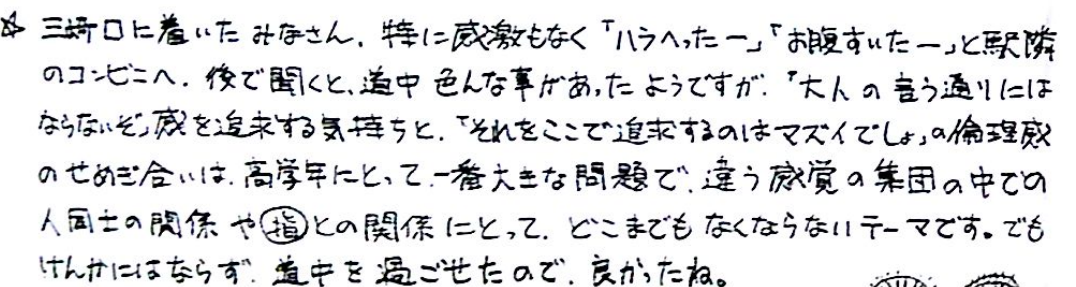 ☆ 三崎口に着いたみなさん、特に感激もなく「ハラへったー」「お腹すいたー」と駅隣
のコンビニへ。後で聞くと、道中色んな事があったようですが、「大人の言う通りには
ならないぞ」感を追求する気持ちと、「それをここで追求するのはマズイでしょ」の倫理感
のせめぎ合いは、高学年にとって、一番大きな問題で、違う感覚の集団の中での
人同士の関係や㊟指との関係にとって、どこまでもなくならないテーマです。でも
けんかにはならず、道中を過ごせたので、良かったね。